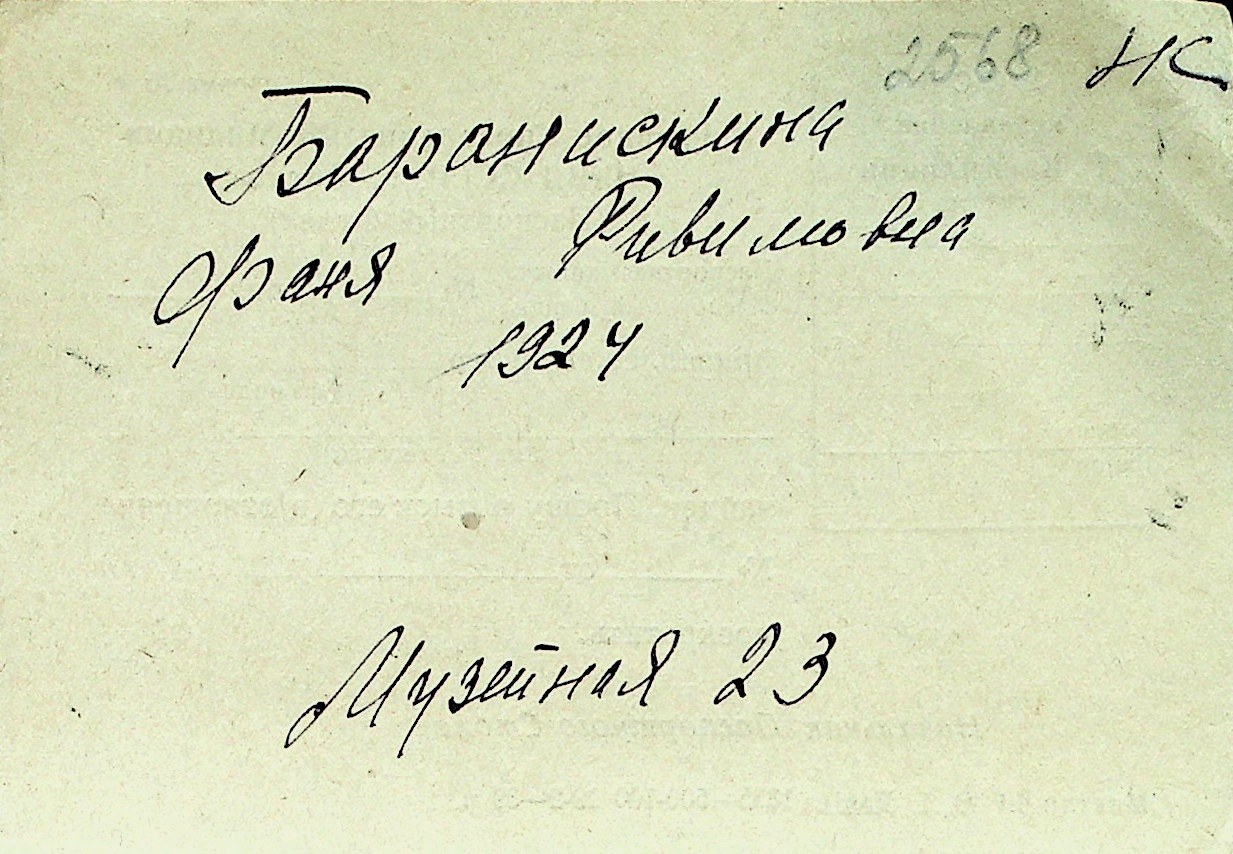 2568 НК
Баранискина
Фаня Фивимовна
1924
Музейная 23